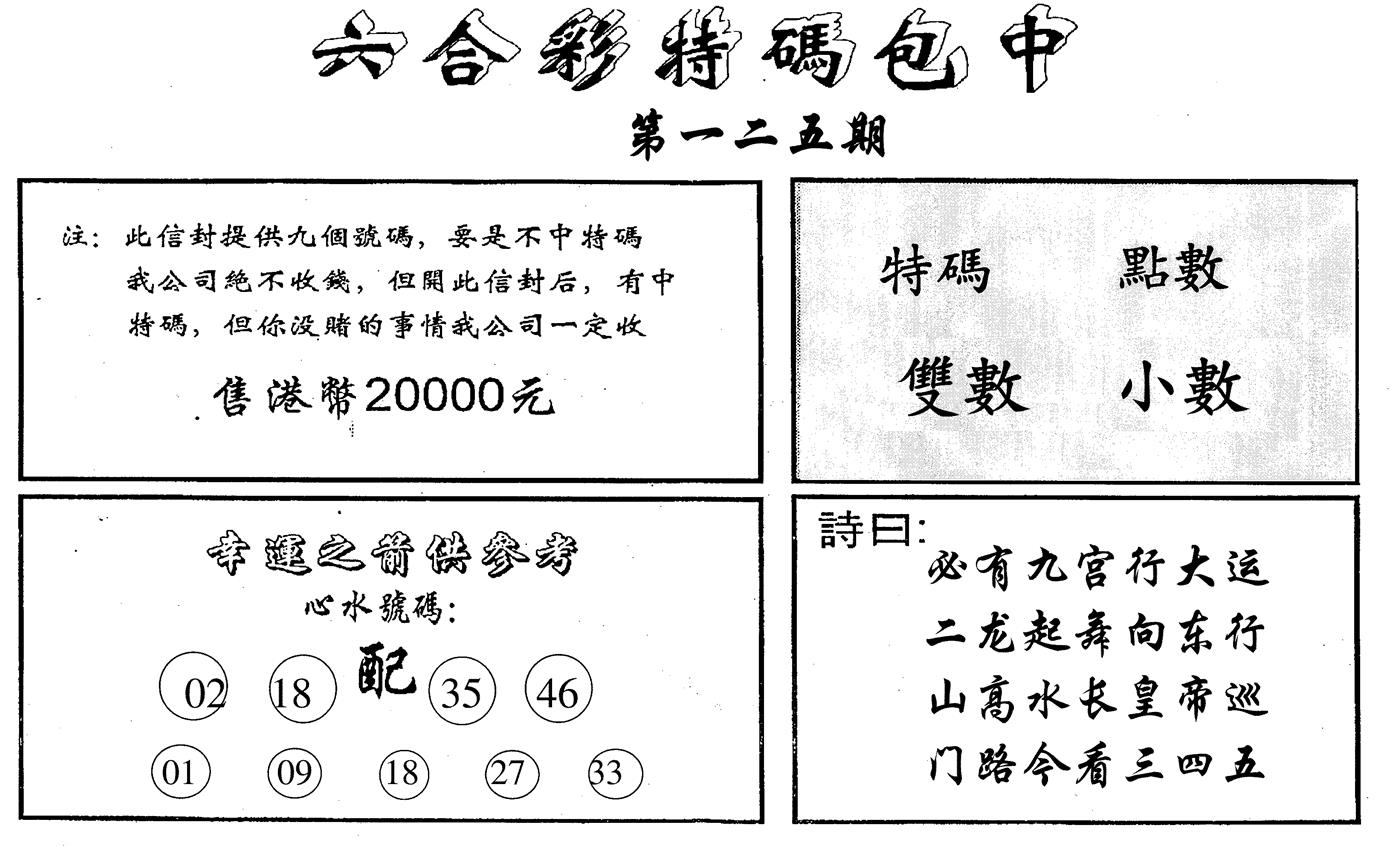 六合彩特碼包中
第一二五期
注：此信封提供九個號碼，要是不中特碼
我公司絕不收錢，但開此信封后，有中
特碼，但你没賭的事情我公司一定收
售港幣20000元
特碼 點數
雙數 小數
幸運之箭供參考
心水號碼：
02 18 配 35 46
01 09 18 27 33
詩曰：
必有九宫行大运
二龙起舞向东行
山高水长皇帝巡
门路今看三四五